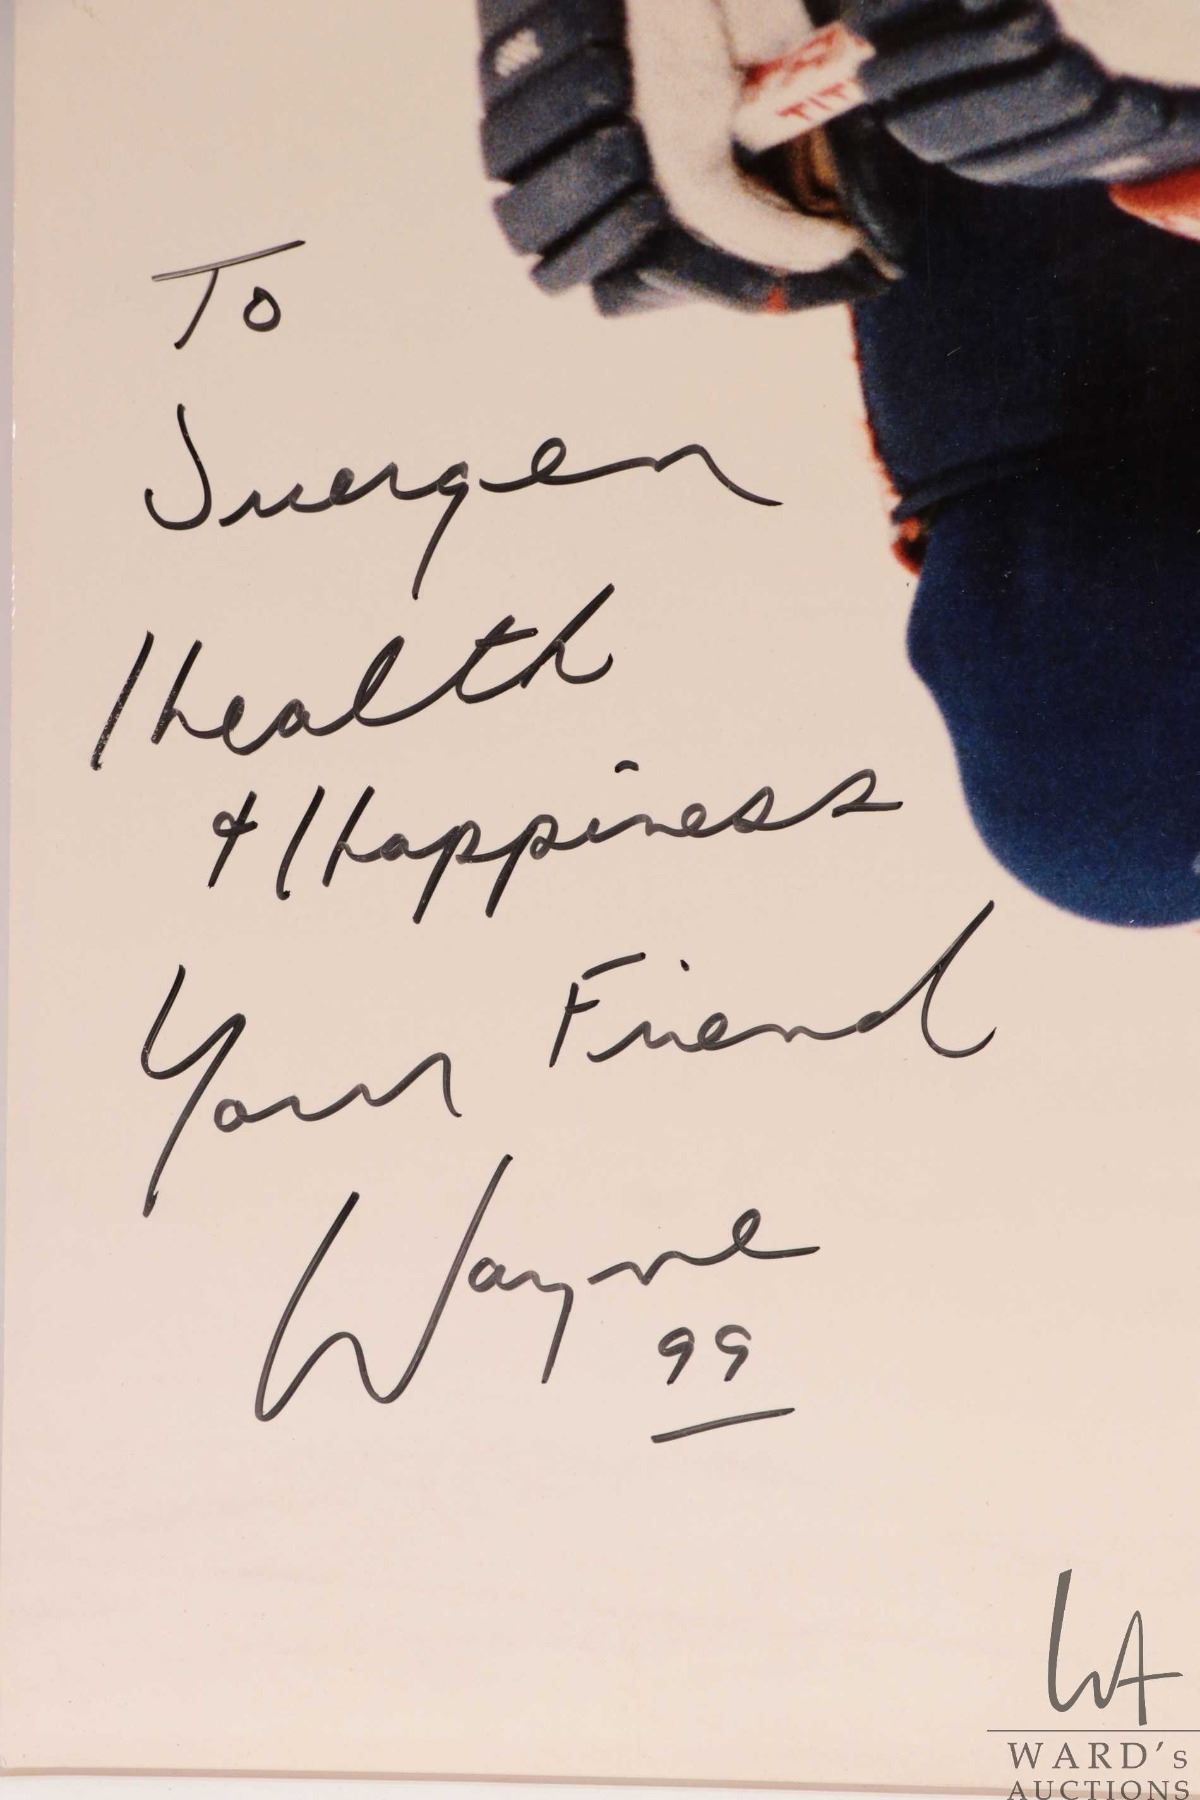 TIT
To
Juergen
Health
+ Happiness
Your Friend
Wayne
99
WA
WARD's
AUCTIONS